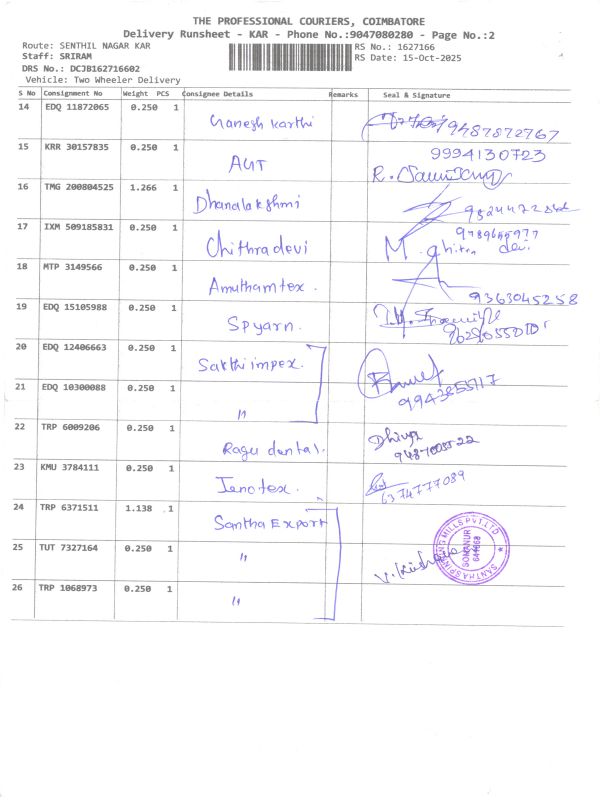 THE PROFESSIONAL COURIERS, COIMBATORE
Delivery Runsheet - KAR - Phone No.:9047080280 - Page No.:2
Route: SENTHIL NAGAR KAR RS No.: 1627166
Staff: SRIRAM RS Date: 15-Oct-2025
DRS No.: DCJB162716602
Vehicle: Two Wheeler Delivery
S No Consignment No Weight PCS Consignee Details Remarks Seal & Signature
14 EDQ 11872065 0.250 1
Ganesh Karthi 9487872767
15 KRR 30157835 0.250 1 9994130723
AGT R.
16 TMG 200804525 1.266 1
Dhanalakshmi
17 IXM 509185831 0.250 1
Chithradevi M. chitra devi
18 MTP 3149566 0.250 1
Amuthamtex. 9363045258
19 EDQ 15105988 0.250 1
Spyarn.
20 EDQ 12406663 0.250 1
Sakthi impex.
21 EDQ 10300088 0.250 1
"
22 TRP 6009206 0.250 1 Dhivya
Ragu dental.
23 KMU 3784111 0.250 1
Jenotex. 6374777089
24 TRP 6371511 1.138 .1
Santha Export
SANTHA SPINNING MILLS PVT LTD
SOMANUR
641668
25 TUT 7327164 0.250 1
" V. Krishna
26 TRP 1068973 0.250 1
"